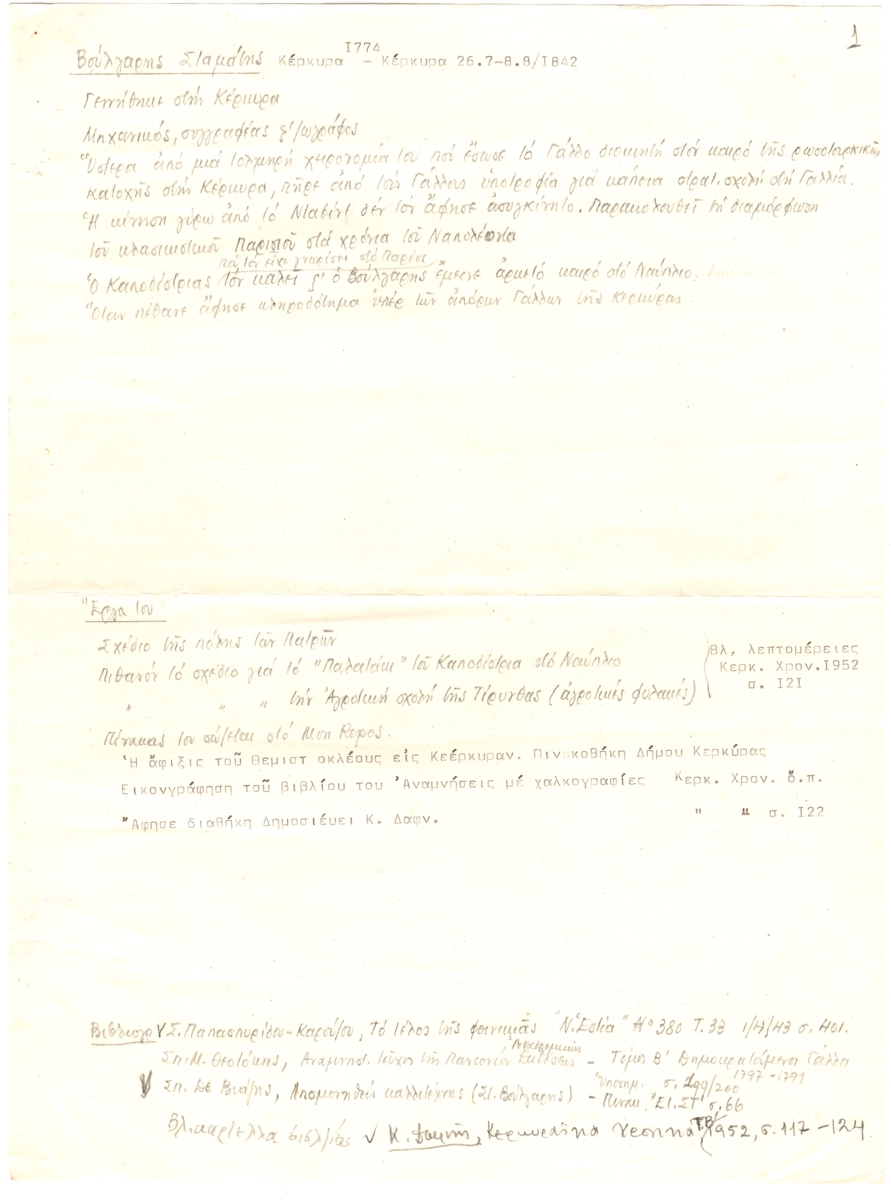 1
Βούλγαρης Σταμάτης Κέρκυρα I774 - Κέρκυρα 26.7-8.8/I842
Γεννήθηκε στήν Κέρκυρα
Μηχανικός, συγγραφέας ζ/ωγράφος
Ὕστερα ἀπό μιά τολμηρή χειρονομία του πού ἔσωσε τό Γάλλο διοικητή στόν καιρό τῆς ρωσοτουρκικῆς
κατοχῆς στήν Κέρκυρα, πῆρε ἀπό τούς Γάλλους ὑποτροφία γιά κάποια στρατ. σχολή στή Γαλλία.
Ἡ κίνηση γύρω ἀπό τό Νταβίντ δέν τόν ἄφησε ἀσυγκίνητο. Παρακολουθεῖ τή διαμόρφωση
τοῦ κλασικιστικοῦ Παρισιοῦ στά χρόνια τοῦ Ναπολέοντα
πού τόν εἶχε γνωρίσει στό Παρίσι
Ὁ Καποδίστριας τόν καλεῖ ὁ Βούλγαρης ἔμεινε ἀρκετό καιρό στό Ναύπλιο.
Ὅταν πέθανε ἄφησε κληροδότημα ὑπέρ τῶν ἀπόρων Γάλλων τῆς Κερκύρας.
Ἔργα του
Σχέδιο τῆς πόλης τῶν Πατρῶν
Πιθανόν τό σχέδιο γιά τό "Παλατάκι" τοῦ Καποδίστρια στό Ναύπλιο
" " " τήν Ἀγροτική σχολή τῆς Τίρυνθας (ἀγροτικές φυλακές)
Βλ, λεπτομέρειες
Κερκ. Χρον.I952
σ. I2I
Πίνακας του σώζεται στό Μον Repos.
Ἡ ἄφιξις τοῦ Θεμιστ οκλέους εἰς Κεέρκυραν. Πινακοθήκη Δήμου Κερκύρας
Εικονγράφηση τοῦ βιβλίου του Ἀναμνήσεις μέ χαλκογραφίες Κερκ. Χρον. ὅ.π.
Ἄφησε διαθήκη Δημοσιέυει Κ. Δαφν. " " σ. I22
Βιβλιογρ V Σ. Παπασπυρίδου-Καρούζου, Τό τέλος τῆς "Ν. Ἑστία" Νο 380 Τ.33 1/4/43 σ. 401.
Σπ. Μ. Θεοτόκης, Αναμνησ. τεῦχος τῆς Πανιονίου Ἀναδρομικῆς Ἐκθέσεως - Τόμος Β' Δημοκρατούμενοι Γάλλοι
1797-1799
V Σπ. Δὲ Βιάζης, Λησμονηθείς καλλιτέχνης (Στ. Βούλγαρης) - Πινακ. Ἔτ. ΣΤ' σ. 66
σ. 199/200
Βλ. καρτέλλα V Κ. Δαφνής, Κερκυραϊκά Χρονικά Τ.Β' 1952, σ. 117-124